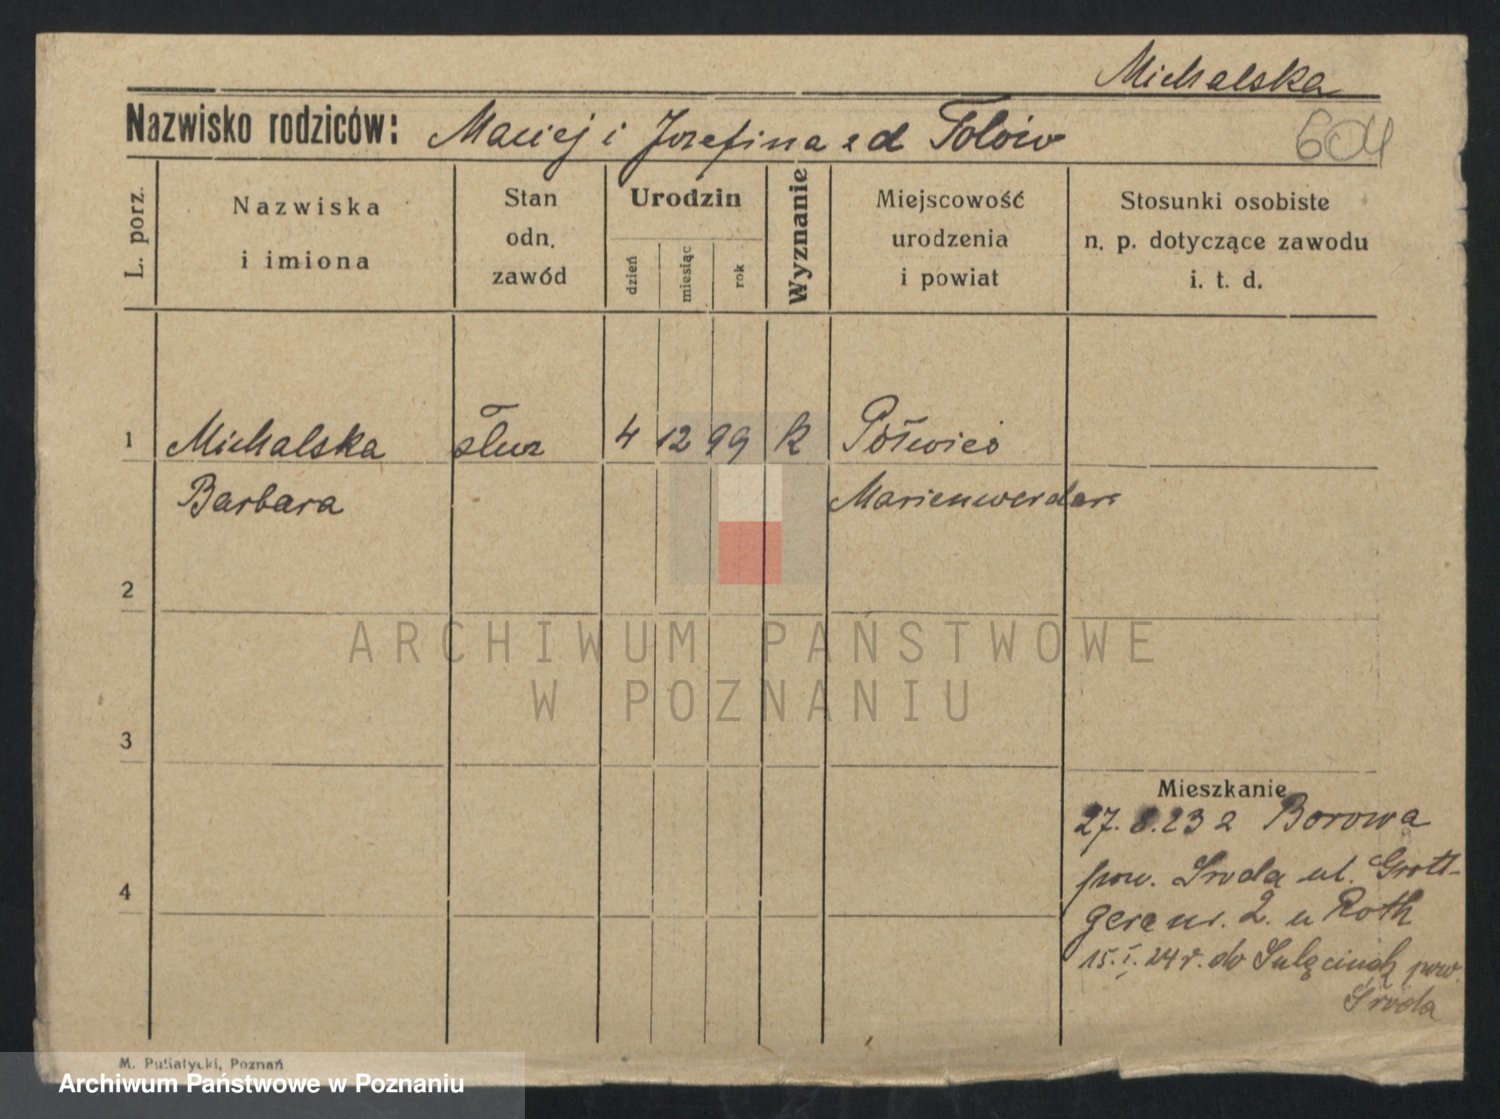 Michalska
Nazwisko rodziców: Maciej i Jozefina z d Tolów
604
L. porz.
Nazwiska
i imiona
Stan
odn.
zawód
Urodzin
dzień
miesiąc
rok
Wyznanie
Miejscowość
urodzenia
i powiat
Stosunki osobiste
n. p. dotyczące zawodu
i. t. d.
1 Michalska służ 4 12 99 k
Barbara Marienwerder
2
3
4
ARCHIWUM PAŃSTWOWE
W POZNANIU
Mieszkanie
27. 8. 23 z Borowa
pow. Środa ul. Grott-
gera nr. 2. u Roth
15. I. 24 r. do Sulęcinek pow.
Środa
M. Putiatycki, Poznań
Archiwum Państwowe w Poznaniu